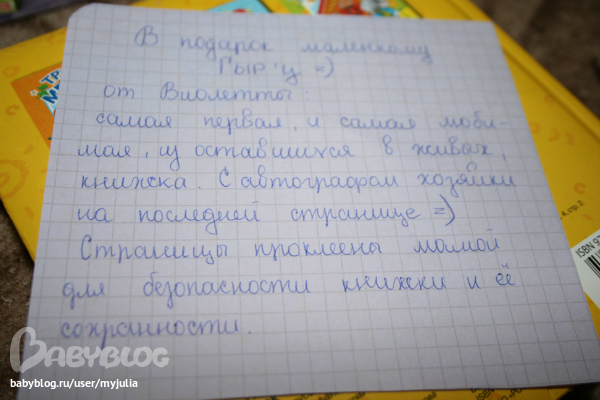 В подарок маленкому
Гыр'у =)
от Виолетты:
самая первая, и самая люби-
мая, из оставшихся в живых,
книжка. С автографом хозяйки
на последней странице =)
Страницы проклеены мамой
для безопасности книжки и её
сохранности.
4, стр. 2
ISBN 97
BABYBLOG
babyblog.ru/user/myjulia